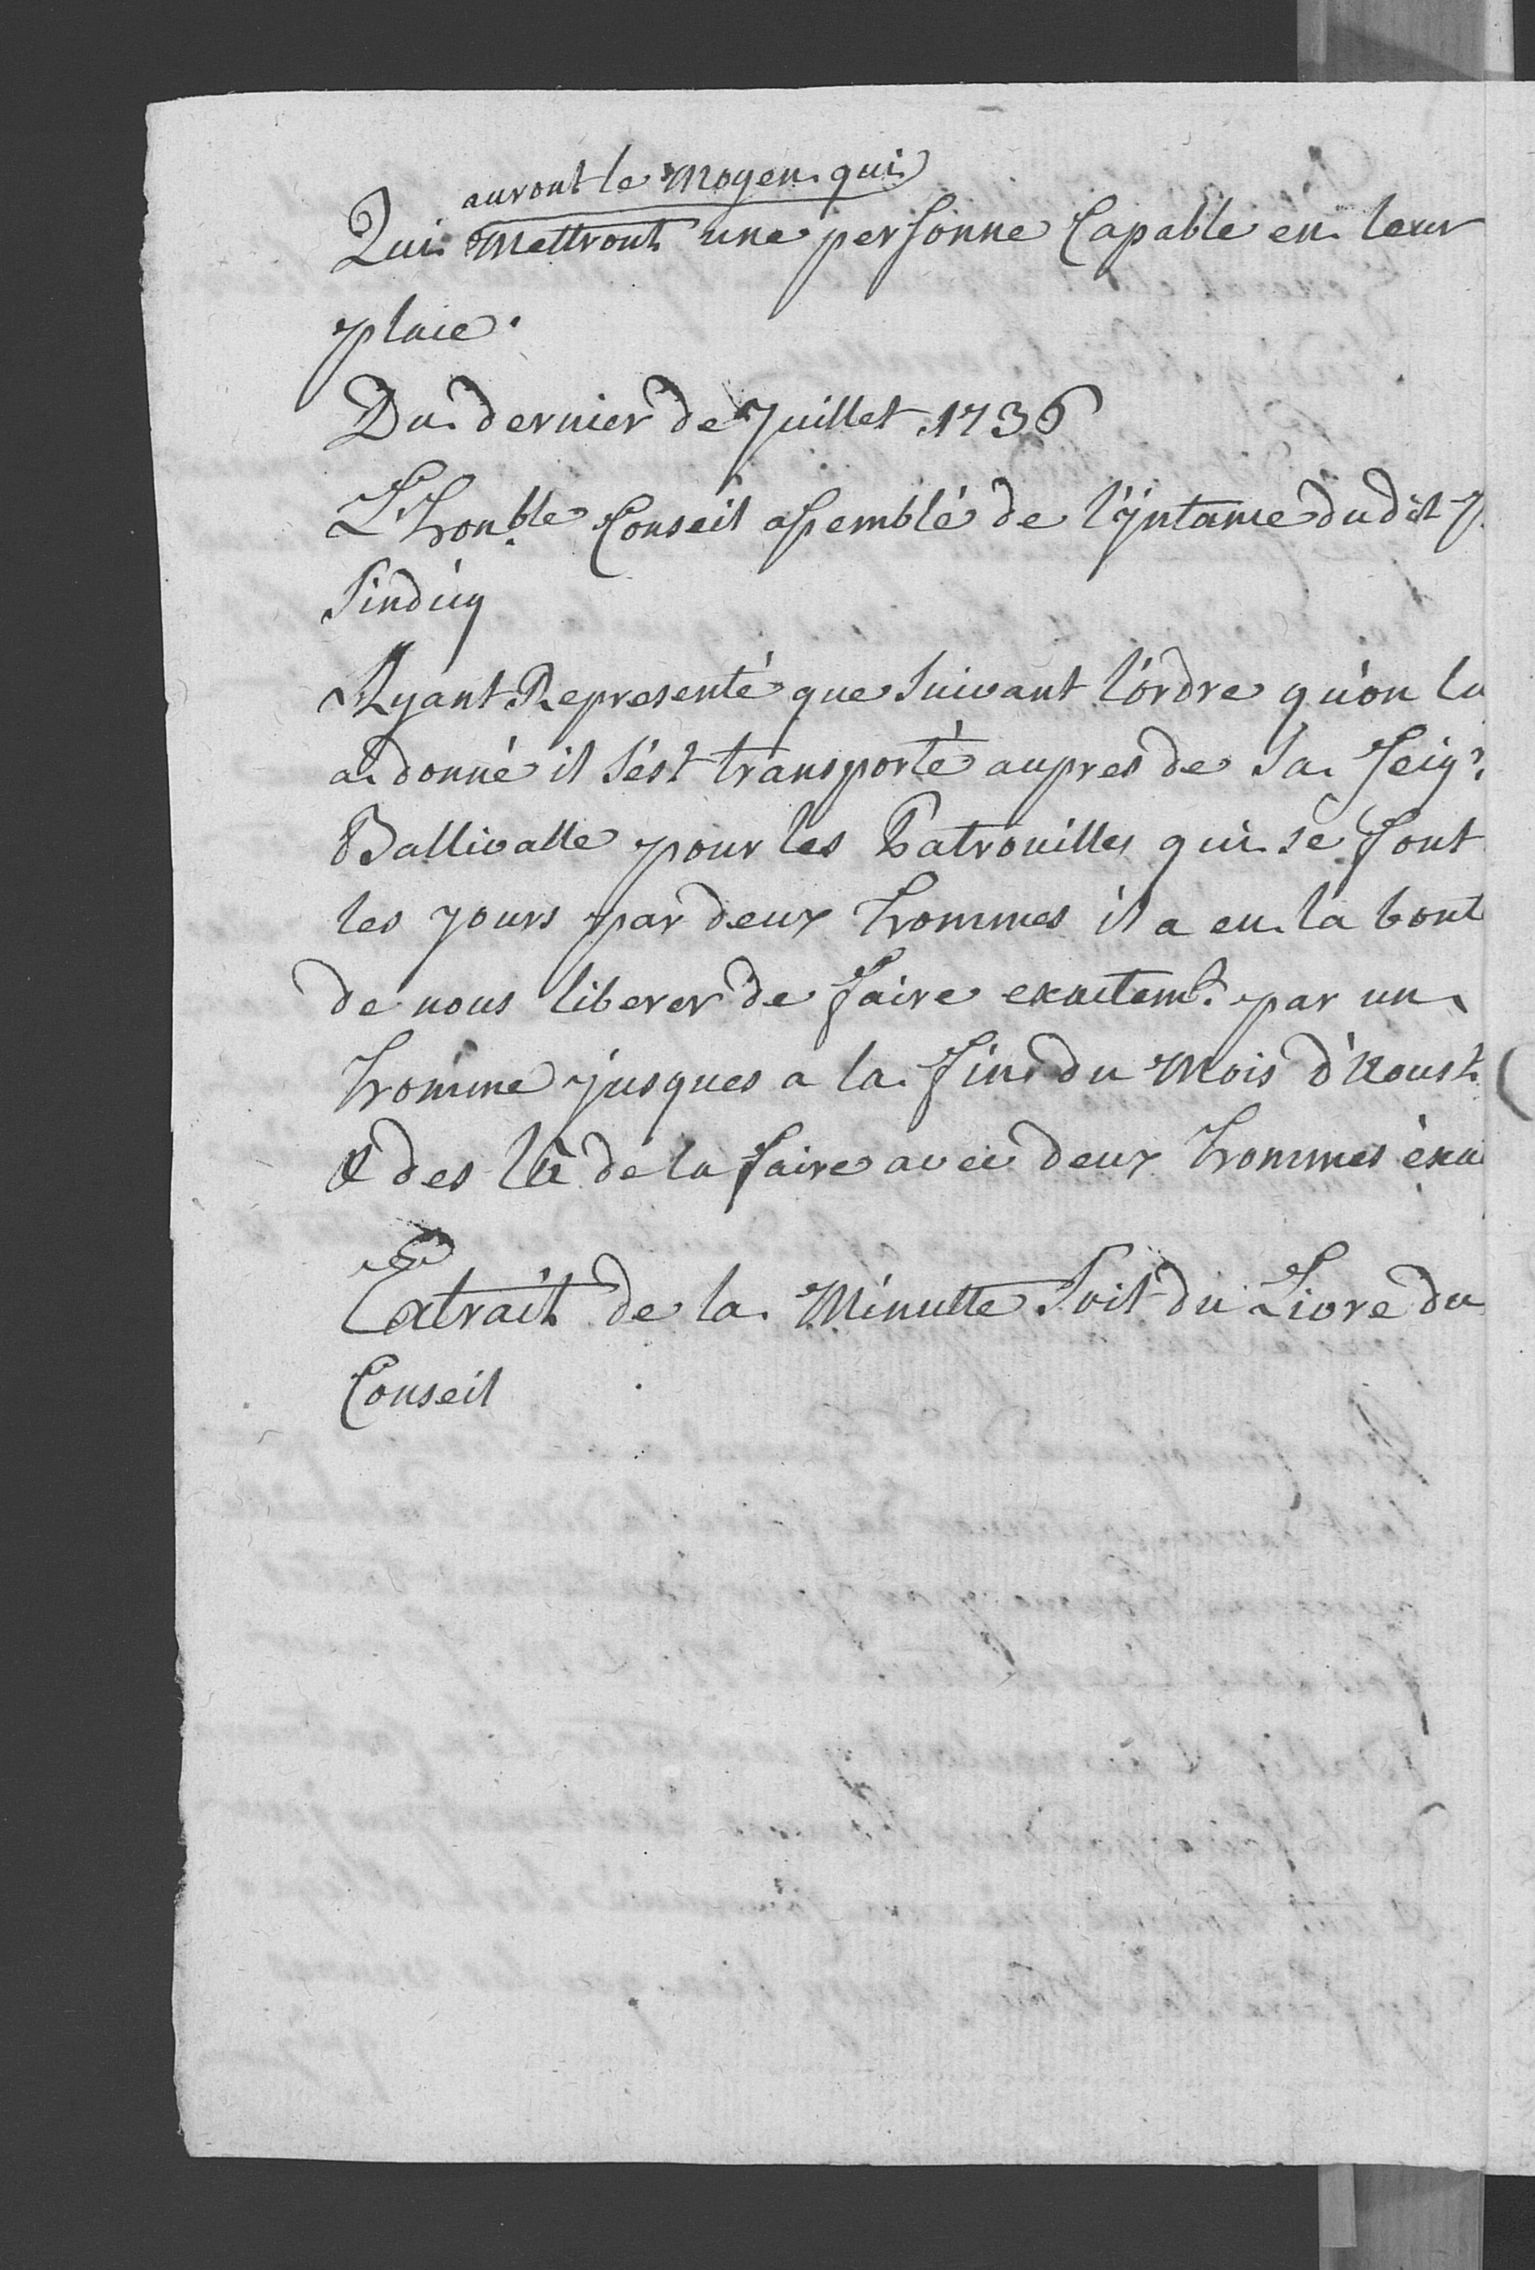 auront le moyen qui
Qui mettront une personne Capable en leur
place.
Du dernier de Juillet 1736
L'honble Conseil assemblé de l'yntance dudit
Sindicq
Ayant Representé que suivant l'ordre qu'on lu
a donné il s'est transporté aupres de Sa Seigr
Ballivalle pour les Patrouilles qui se font
les jours par deux hommes il a eu la bont
de nous liberer de faire exactemt par un
homme jusques a la fin du Mois d'Aoust
& des là de la faire avec deux hommes exa
Extrait de la Minutte Soit du Livre du
Conseil